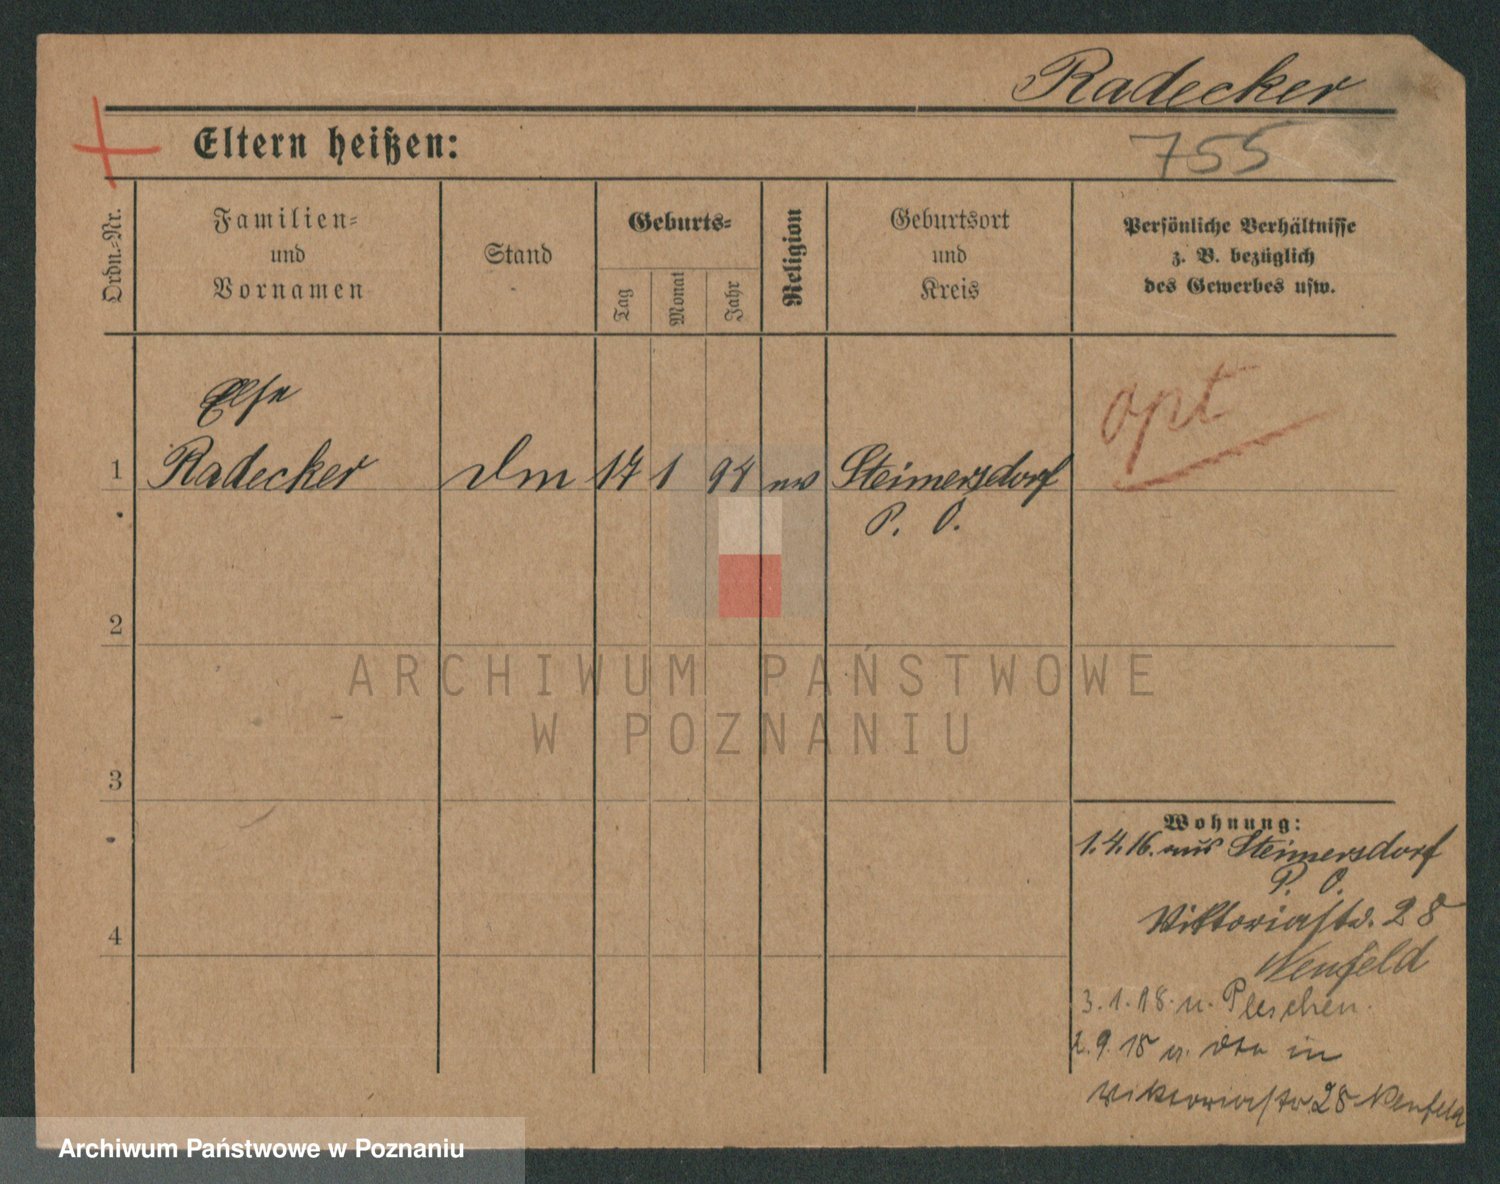 Radecker
755
Eltern heißen:
Ordn.-Nr.
Familien-
und
Vornamen
Stand
Geburts-
Tag
Monat
Jahr
Religion
Geburtsort
und
Kreis
Persönliche Verhältnisse
z. B. bezüglich
des Gewerbes usw.
Else
1 Radecker 17 1 94 Steimersdorf
P. O.
opt
2
3
4
ARCHIWUM PAŃSTWOWE
W POZNANIU
Wohnung:
1.4.16. aus Steimersdorf
P. O.
Viktoriastr. 28
Neufeld
3.1.18. n. Pleschen.
2.9.18 v. dto in
Viktoriastr. 28 Neufeld
Archiwum Państwowe w Poznaniu